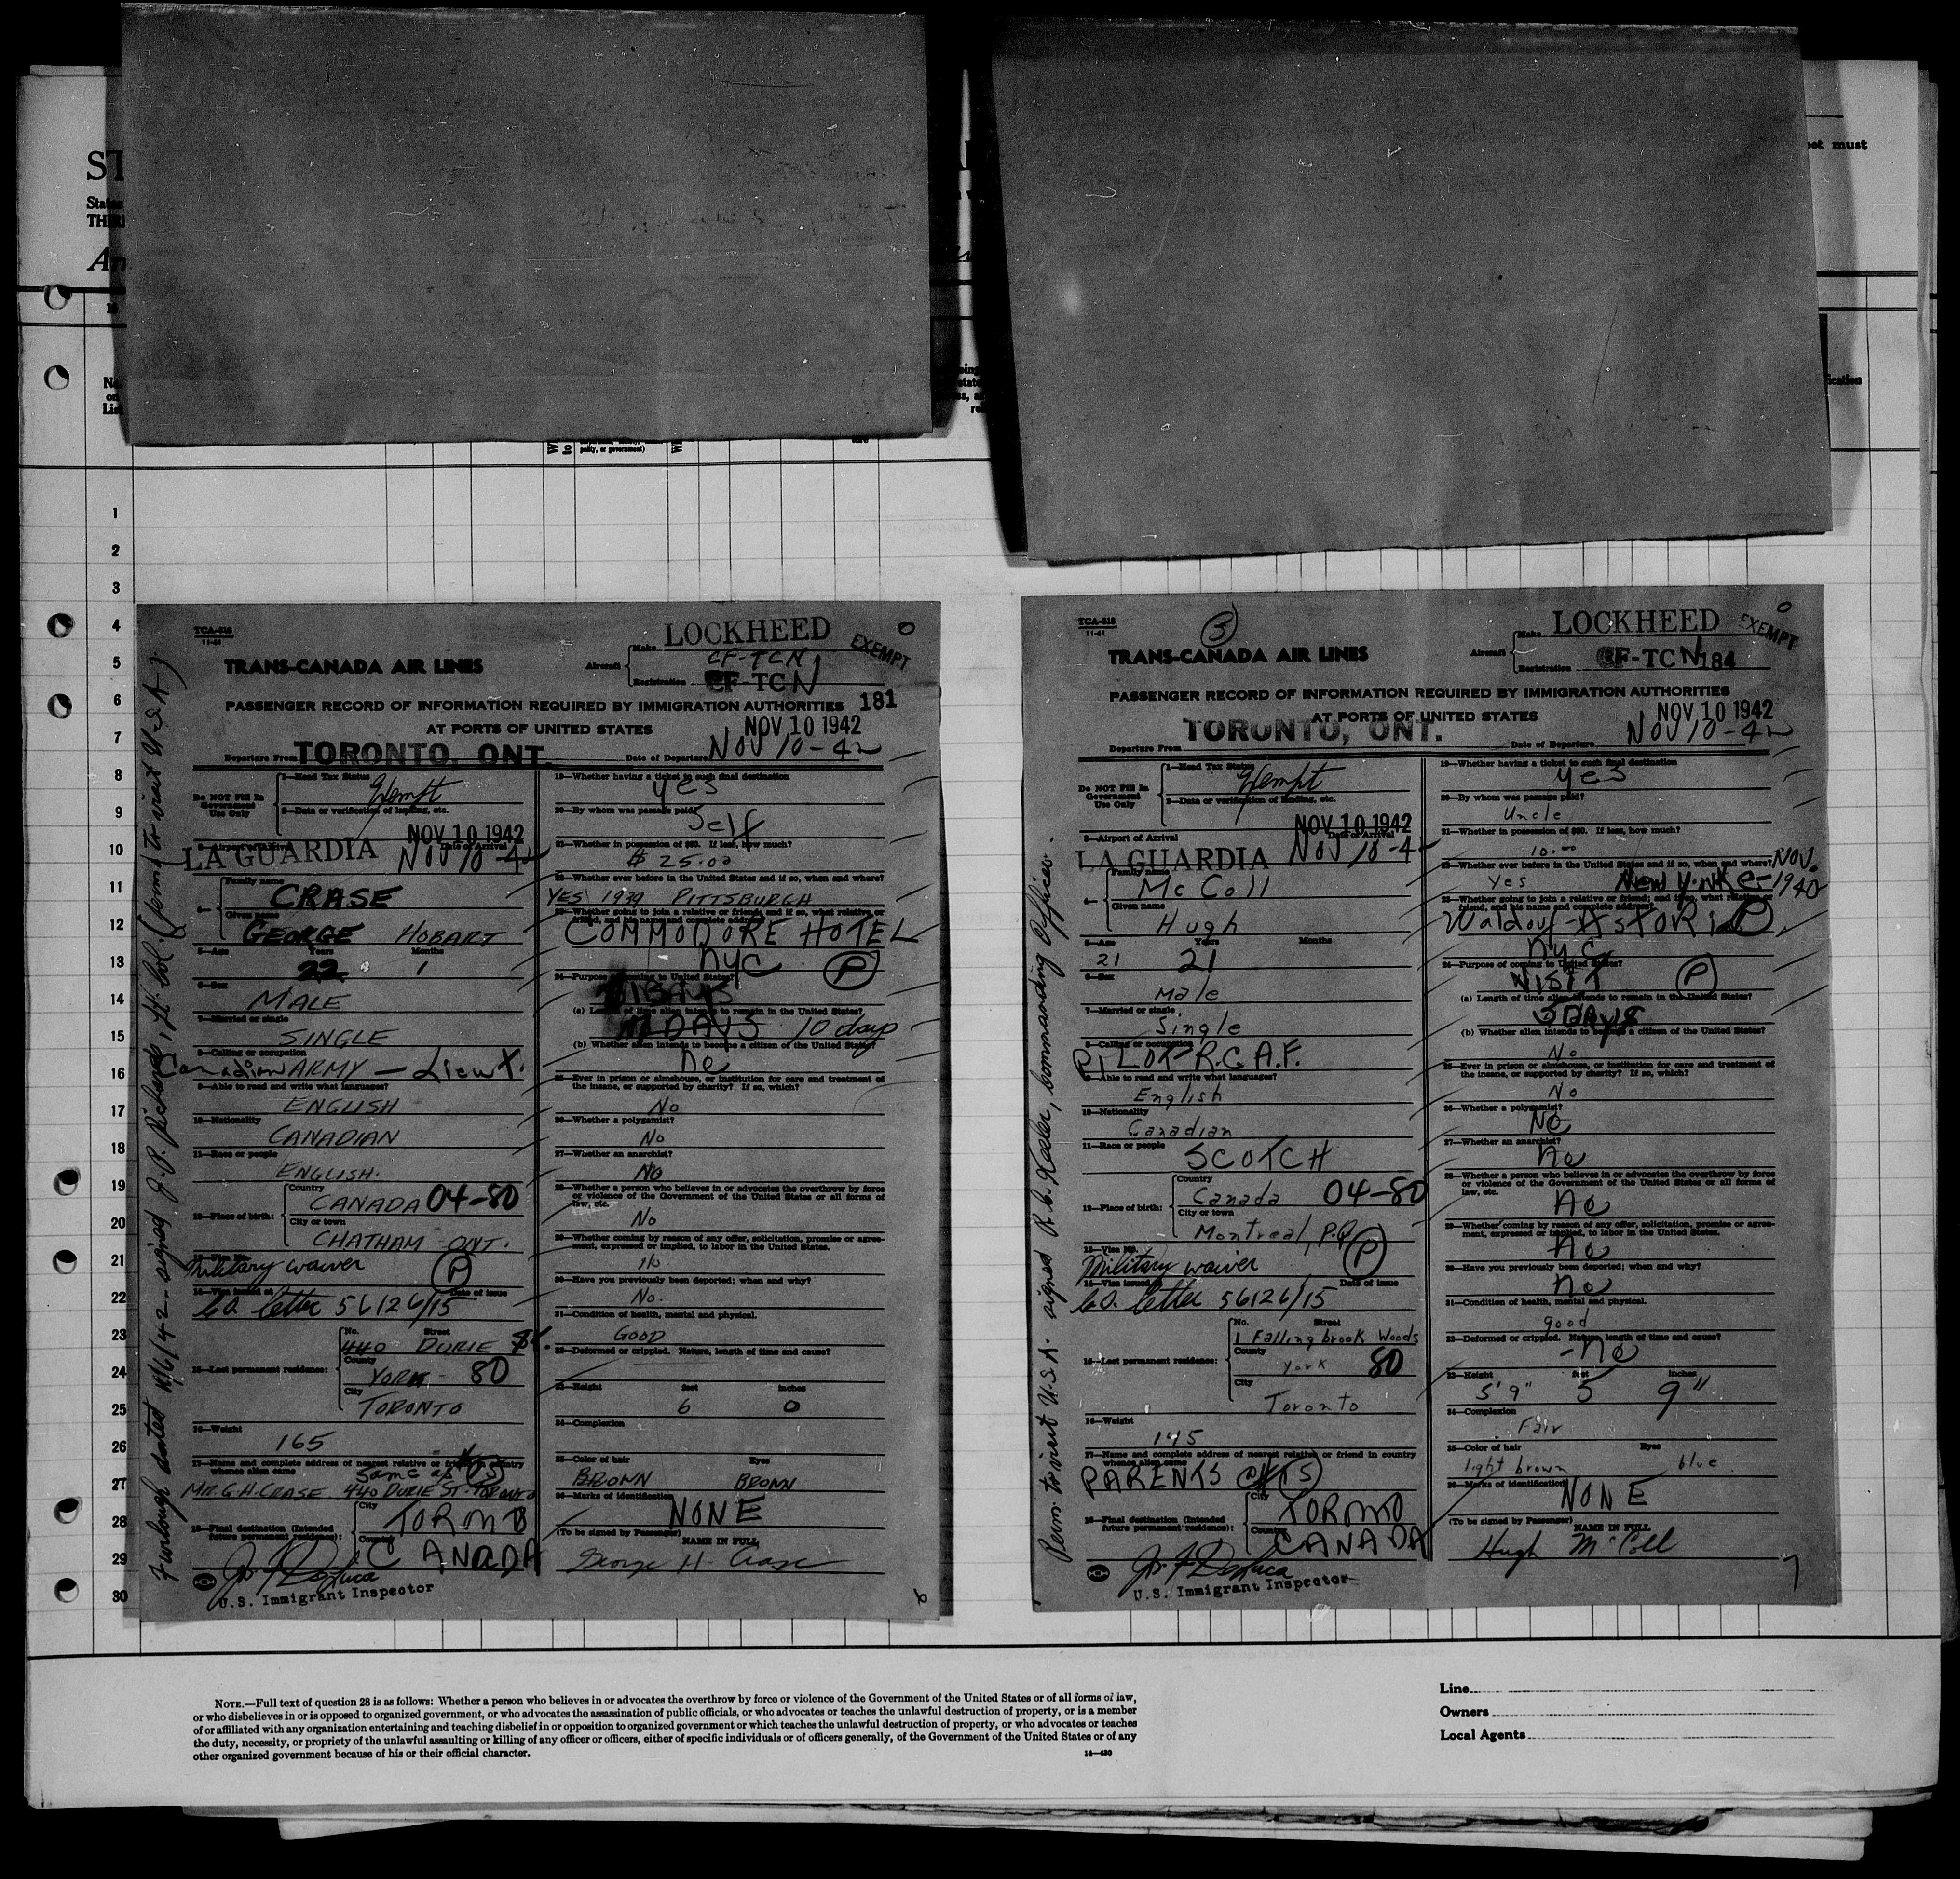 ST
States
THIR
et must
ication
No.
on
List
polity, or government)
1
2
3
4
5
6
7
8
9
10
11
12
13
14
15
16
17
18
19
20
21
22
23
24
25
26
27
28
29
30
TCA-818
11-41
LOCKHEED
EXEMPT
TRANS-CANADA AIR LINES
Aircraft
Make
CF-TCN
Registration CF-TCN
PASSENGER RECORD OF INFORMATION REQUIRED BY IMMIGRATION AUTHORITIES 181
AT PORTS OF UNITED STATES
NOV 10 1942
Departure From TORONTO, ONT.
Date of Departure NOV 10-42
Do NOT Fill In Government Use Only
1—Head Tax Status
Exempt
2—Data or verification of landing, etc.
3—Airport of Arrival
LA GUARDIA
NOV 10 1942
Date of Arrival
NOV 10-42
4—
Family name
CRASE
Given name
GEORGE HOBART
5—Age Years Months
22 1
6—Sex
MALE
7—Married or single
SINGLE
8—Calling or occupation
Canadian ARMY — Lieut.
9—Able to read and write what languages?
ENGLISH
10—Nationality
CANADIAN
11—Race or people
ENGLISH.
12—Place of birth:
Country
CANADA 04-80
City or town
CHATHAM ONT.
13—Visa No.
Military waiver (P)
14—Visa issued at Date of issue
C.O. letter 56126/15
15—Last permanent residence:
No. Street
440 DURIE St.
County
YORK - 80
City
TORONTO
16—Weight
165
17—Name and complete address of nearest relative or friend in country whence alien came
Same as # 15
MR. G.H. CRASE 440 DURIE ST. TORONTO
18—Final destination (Intended future permanent residence):
City
TORONTO
Country
CANADA
U.S. Immigrant Inspector
19—Whether having a ticket to such final destination
yes
20—By whom was passage paid?
Self
21—Whether in possession of $50. If less, how much?
$ 25.00
22—Whether ever before in the United States and if so, when and where?
YES 1939 PITTSBURGH
23—Whether going to join a relative or friend; and if so, what relative or friend, and his name and complete address?
COMMODORE HOTEL
NYC (P)
24—Purpose of coming to United States?
(a) Length of time alien intends to remain in the United States?
DAYS 10 days
(b) Whether alien intends to become a citizen of the United States?
no
25—Ever in prison or almshouse, or institution for care and treatment of the insane, or supported by charity? If so, which?
No
26—Whether a polygamist?
No
27—Whether an anarchist?
NO
28—Whether a person who believes in or advocates the overthrow by force or violence of the Government of the United States or all forms of law, etc.
No
29—Whether coming by reason of any offer, solicitation, promise or agreement, expressed or implied, to labor in the United States.
no
30—Have you previously been deported; when and why?
No.
31—Condition of health, mental and physical.
GOOD
32—Deformed or crippled. Nature, length of time and cause?
33—Height feet inches
6 0
34—Complexion
35—Color of hair Eyes
BROWN BROWN
36—Marks of identification
NONE
(To be signed by Passenger)
NAME IN FULL
George H. Crase
Furlough dated 11/6/42 - signed J.P. Richards, Lt. Col. (perm to visit U.S.A.)
TCA-818
11-41
3
LOCKHEED
EXEMPT
TRANS-CANADA AIR LINES
Aircraft
Make
Registration CF-TCN 184
PASSENGER RECORD OF INFORMATION REQUIRED BY IMMIGRATION AUTHORITIES
AT PORTS OF UNITED STATES
NOV 10 1942
Departure From TORONTO, ONT.
Date of Departure NOV 10-42
Do NOT Fill In Government Use Only
1—Head Tax Status
Exempt
2—Data or verification of landing, etc.
3—Airport of Arrival
LA GUARDIA
NOV 10 1942
Date of Arrival
NOV 10-4
4—
Family name
McColl
Given name
Hugh
5—Age Years Months
21 21
6—Sex
Male
7—Married or single
Single
8—Calling or occupation
PILOT-R.C.A.F.
9—Able to read and write what languages?
English
10—Nationality
Canadian
11—Race or people
SCOTCH
12—Place of birth:
Country
Canada 04-80
City or town
Montreal, P.Q.
13—Visa No.
Military waiver (P)
14—Visa issued at Date of issue
C.O. letter 56126/15
15—Last permanent residence:
No. Street
1 Fallingbrook Woods
County
York 80
City
Toronto
16—Weight
145
17—Name and complete address of nearest relative or friend in country whence alien came
PARENTS # 15
18—Final destination (Intended future permanent residence):
City
TORONTO
Country
CANADA
U.S. Immigrant Inspector
19—Whether having a ticket to such final destination
yes
20—By whom was passage paid?
Uncle
21—Whether in possession of $50. If less, how much?
10.00
22—Whether ever before in the United States and if so, when and where?
Yes New York Nov. 1940
23—Whether going to join a relative or friend; and if so, what relative or friend, and his name and complete address?
Waldorf-ASTORIA
NYC
24—Purpose of coming to United States?
VISIT (P)
(a) Length of time alien intends to remain in the United States?
3 DAYS
(b) Whether alien intends to become a citizen of the United States?
No
25—Ever in prison or almshouse, or institution for care and treatment of the insane, or supported by charity? If so, which?
No
26—Whether a polygamist?
No
27—Whether an anarchist?
no
28—Whether a person who believes in or advocates the overthrow by force or violence of the Government of the United States or all forms of law, etc.
no
29—Whether coming by reason of any offer, solicitation, promise or agreement, expressed or implied, to labor in the United States.
no
30—Have you previously been deported; when and why?
no
31—Condition of health, mental and physical.
good
32—Deformed or crippled. Nature, length of time and cause?
-no
33—Height feet inches
5'9" 5 9"
34—Complexion
Fair
35—Color of hair Eyes
light brown blue
36—Marks of identification
NONE
(To be signed by Passenger)
NAME IN FULL
Hugh McColl
Perm to visit U.S.A. signed Commanding Officer.
NOTE.—Full text of question 28 is as follows: Whether a person who believes in or advocates the overthrow by force or violence of the Government of the United States or of all forms of law,
or who disbelieves in or is opposed to organized government, or who advocates the assassination of public officials, or who advocates or teaches the unlawful destruction of property, or is a member
of or affiliated with any organization entertaining and teaching disbelief in or opposition to organized government or which teaches the unlawful destruction of property, or who advocates or teaches
the duty, necessity, or propriety of the unlawful assaulting or killing of any officer or officers, either of specific individuals or of officers generally, of the Government of the United States or of any
other organized government because of his or their official character.
14—430
Line
Owners
Local Agents